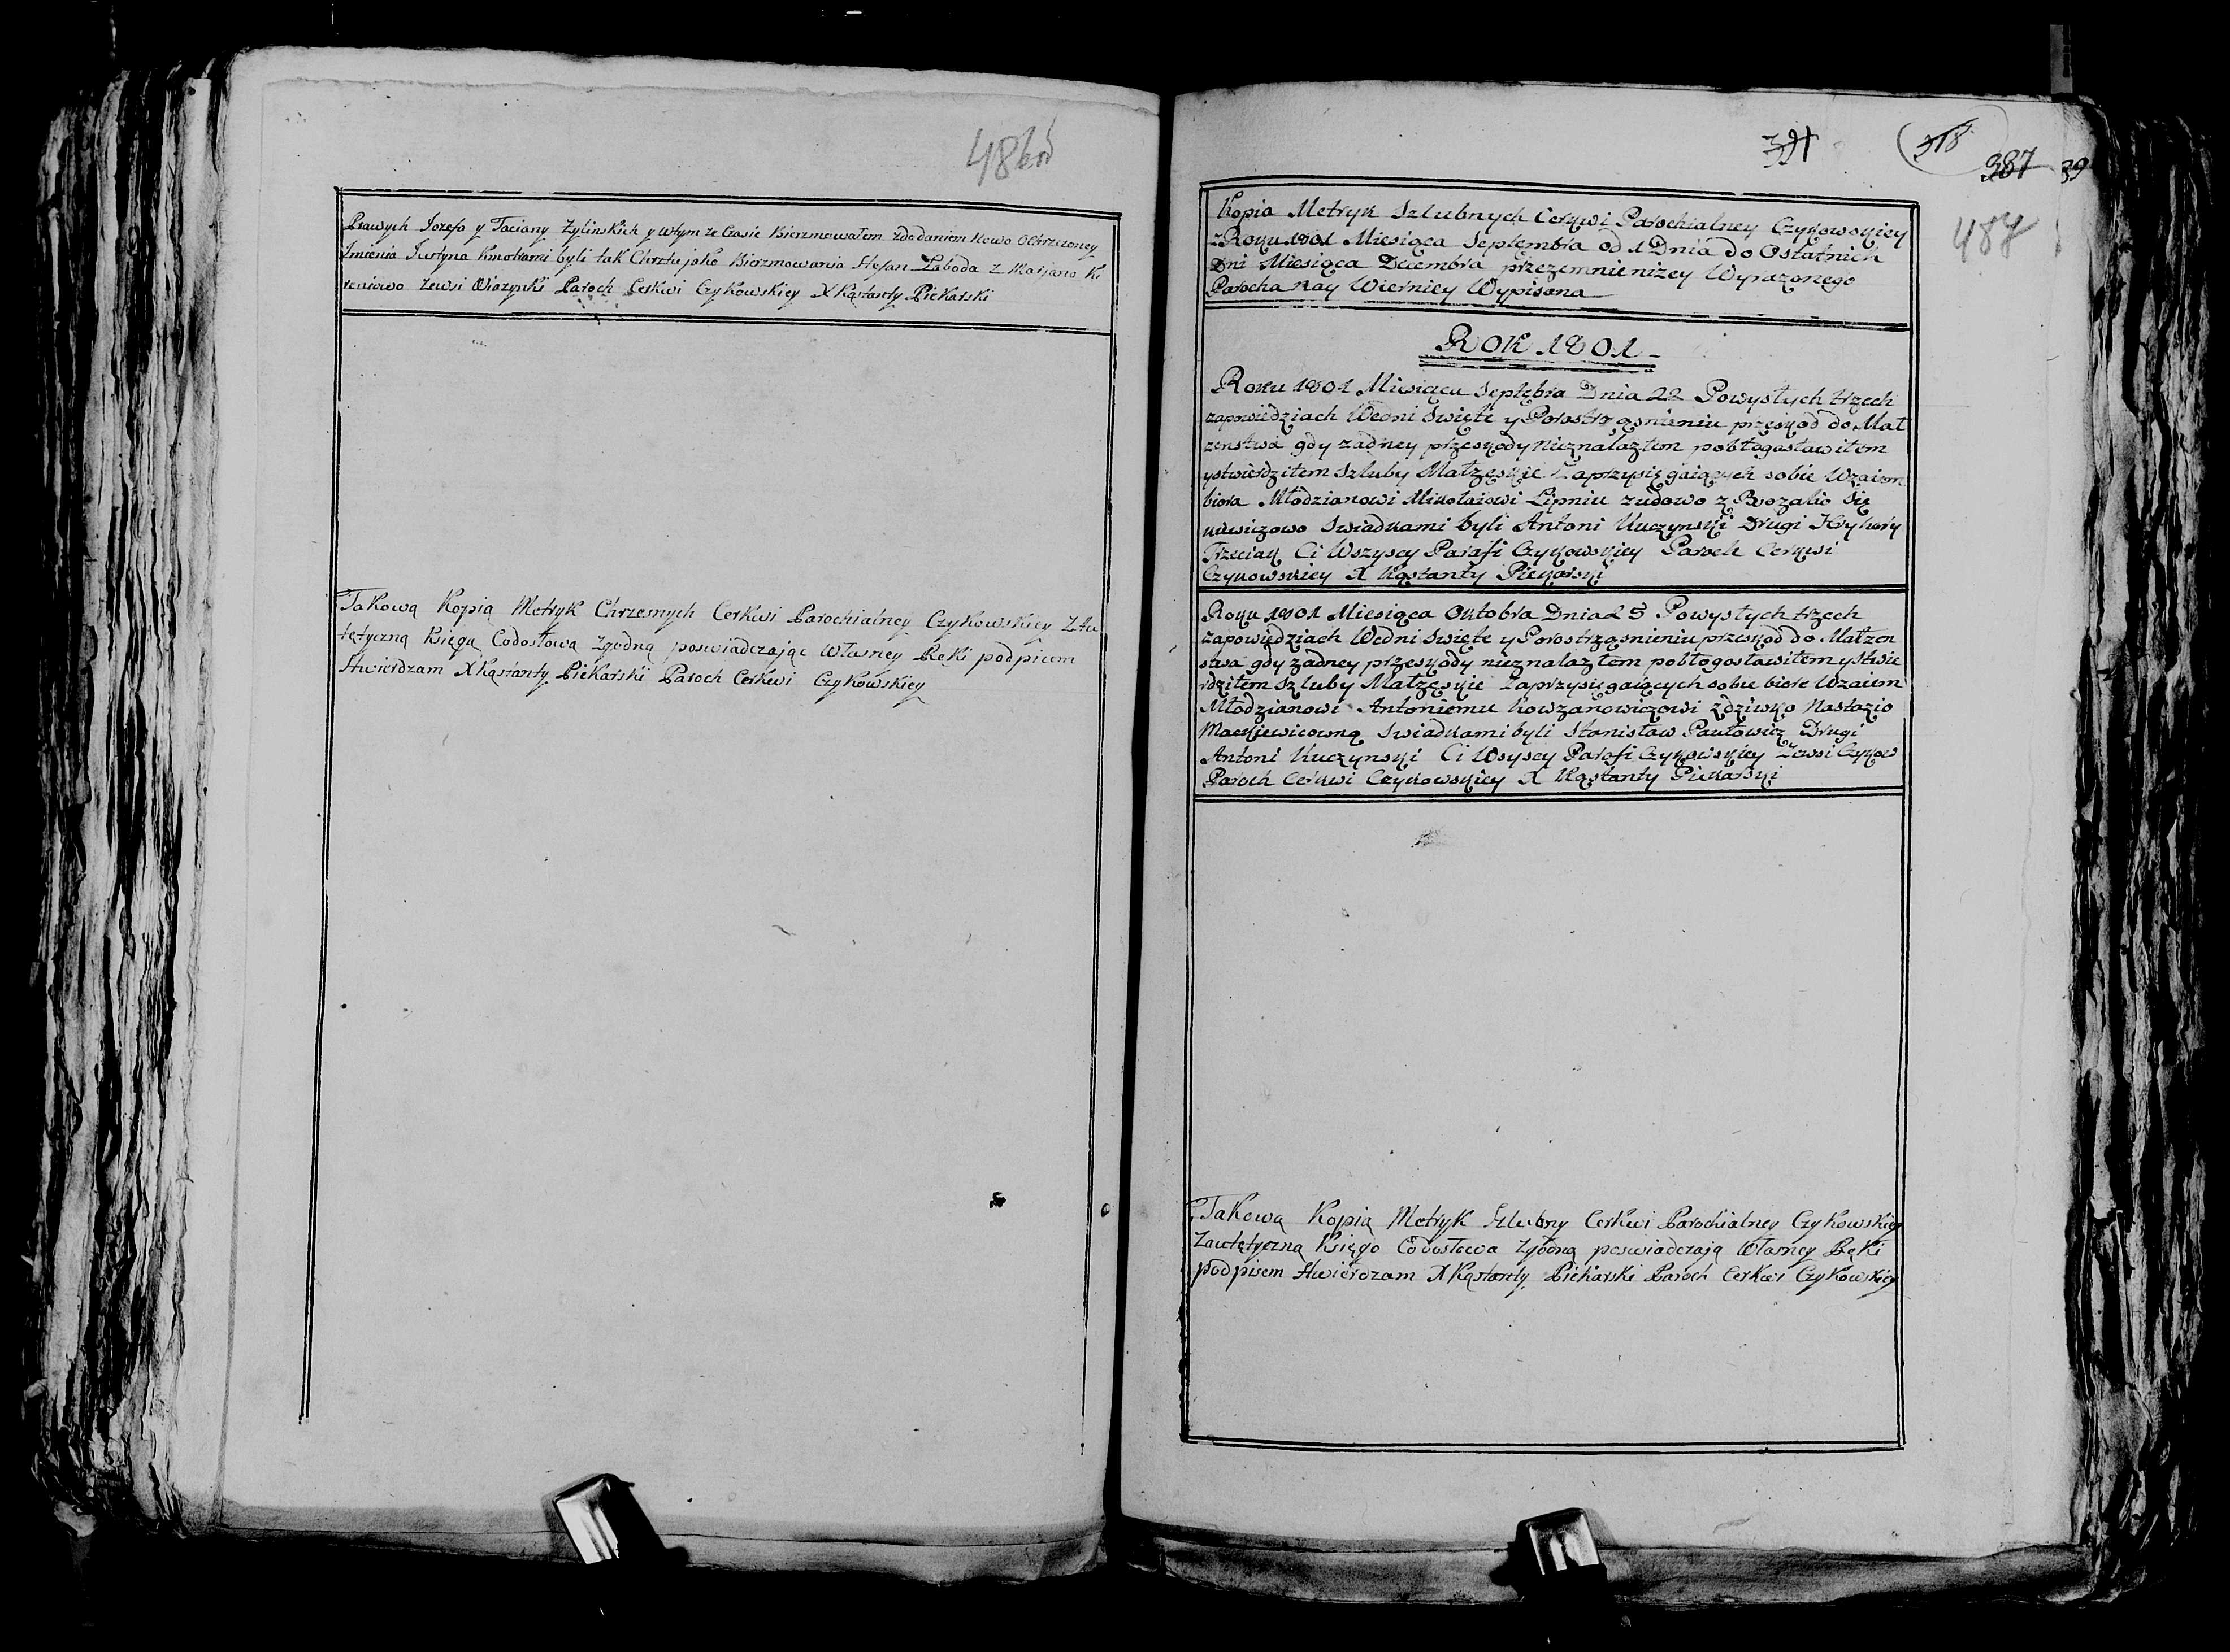 48
Prawych Jozefa y Taciany Zylinskich y wtym ze Czasie Bierzmowałem zdodaniem Nowo Ochrzczoney
Jmienia Justyna Kmotrami byli tak Chrztu jako Bierzmowania Stefan Łaboda z Marjaną
zewsi Wiazynki Paroch Cerkwi Czykowskiey X Kąstanty Piekarski
Takową Kopią Metryk Chrzesnych Cerkwi Parochialney Czykowskiey Zau
tętyczną Księgu Codosłowa Zgodną poswiadczając Własney Ręki podpisem
Stwierdzam X Kąstanty Piekarski Paroch Cerkwi Czykowskiey
391
318
387 39
487
Kopia Metryk Szlubnych Cerkwi Parochialney Czykowskiey
z Roku 1801 Miesiąca Septembra od 1 Dnia do Ostatnich
Dni Miesiąca Decembra przezemnie niżey Wyrazonego
Parocha Nay Wierniey Wypisana
ROK 1801
Roku 1801 Miesiąca Septębra Dnia 22 Powysłych trzech
zapowiedziach Wedni Swięte y Porostrząsnieniu przeskod do Mał
zenstwa gdy zadney przeskody nieznalazłem pobłogosławiłem
ystwierdziłem Szluby Małzęskie Zaprzysięgaiących sobie Wzaiem
biora Młodzianowi Mikołaiowi Lipniu zudowo z Rozalio Się
kiewiczowo Swiadkami byli Antoni Kuczynski Drugi Hryhory
Trzeciak Ci Wszyscy Parafi Czykowskiey Paroch Cerkwi
Czykowskiey X Kąstanty Piekarski
Roku 1801 Miesiąca Oktobra Dnia 25 Powysłych trzech
zapowiędziach Wedni Swięte y Porostrząsnieniu przeskod do Małzen
stwa gdy zadney przeskody nieznalazłem pobłogosławiłem ystwie
rdziłem Szluby Małzęskie Zaprzysięgaiących sobie biore Wzaiem
Młodzianowi Antoniemu Kowzanowiczowi zdziwko Nastazio
Mackiewicowną Swiadkami byli Stanisław Pawłowicz Drugi
Antoni Kuczynski Ci Wsyscy Parafi Czykowskiey Zewsi Czykow
Paroch Cerkwi Czykowskiey X Kąstanty Piekarski
Takową Kopią Metryk Szlubny Cerkwi Parochialney Czykowskiey
Zautętyczną Księgo Codosłowa Zgodną poswiadczają Własney Ręki
podpisem Stwierdzam X Kąstanty Piekarski Paroch Cerkwi Czykowskiey